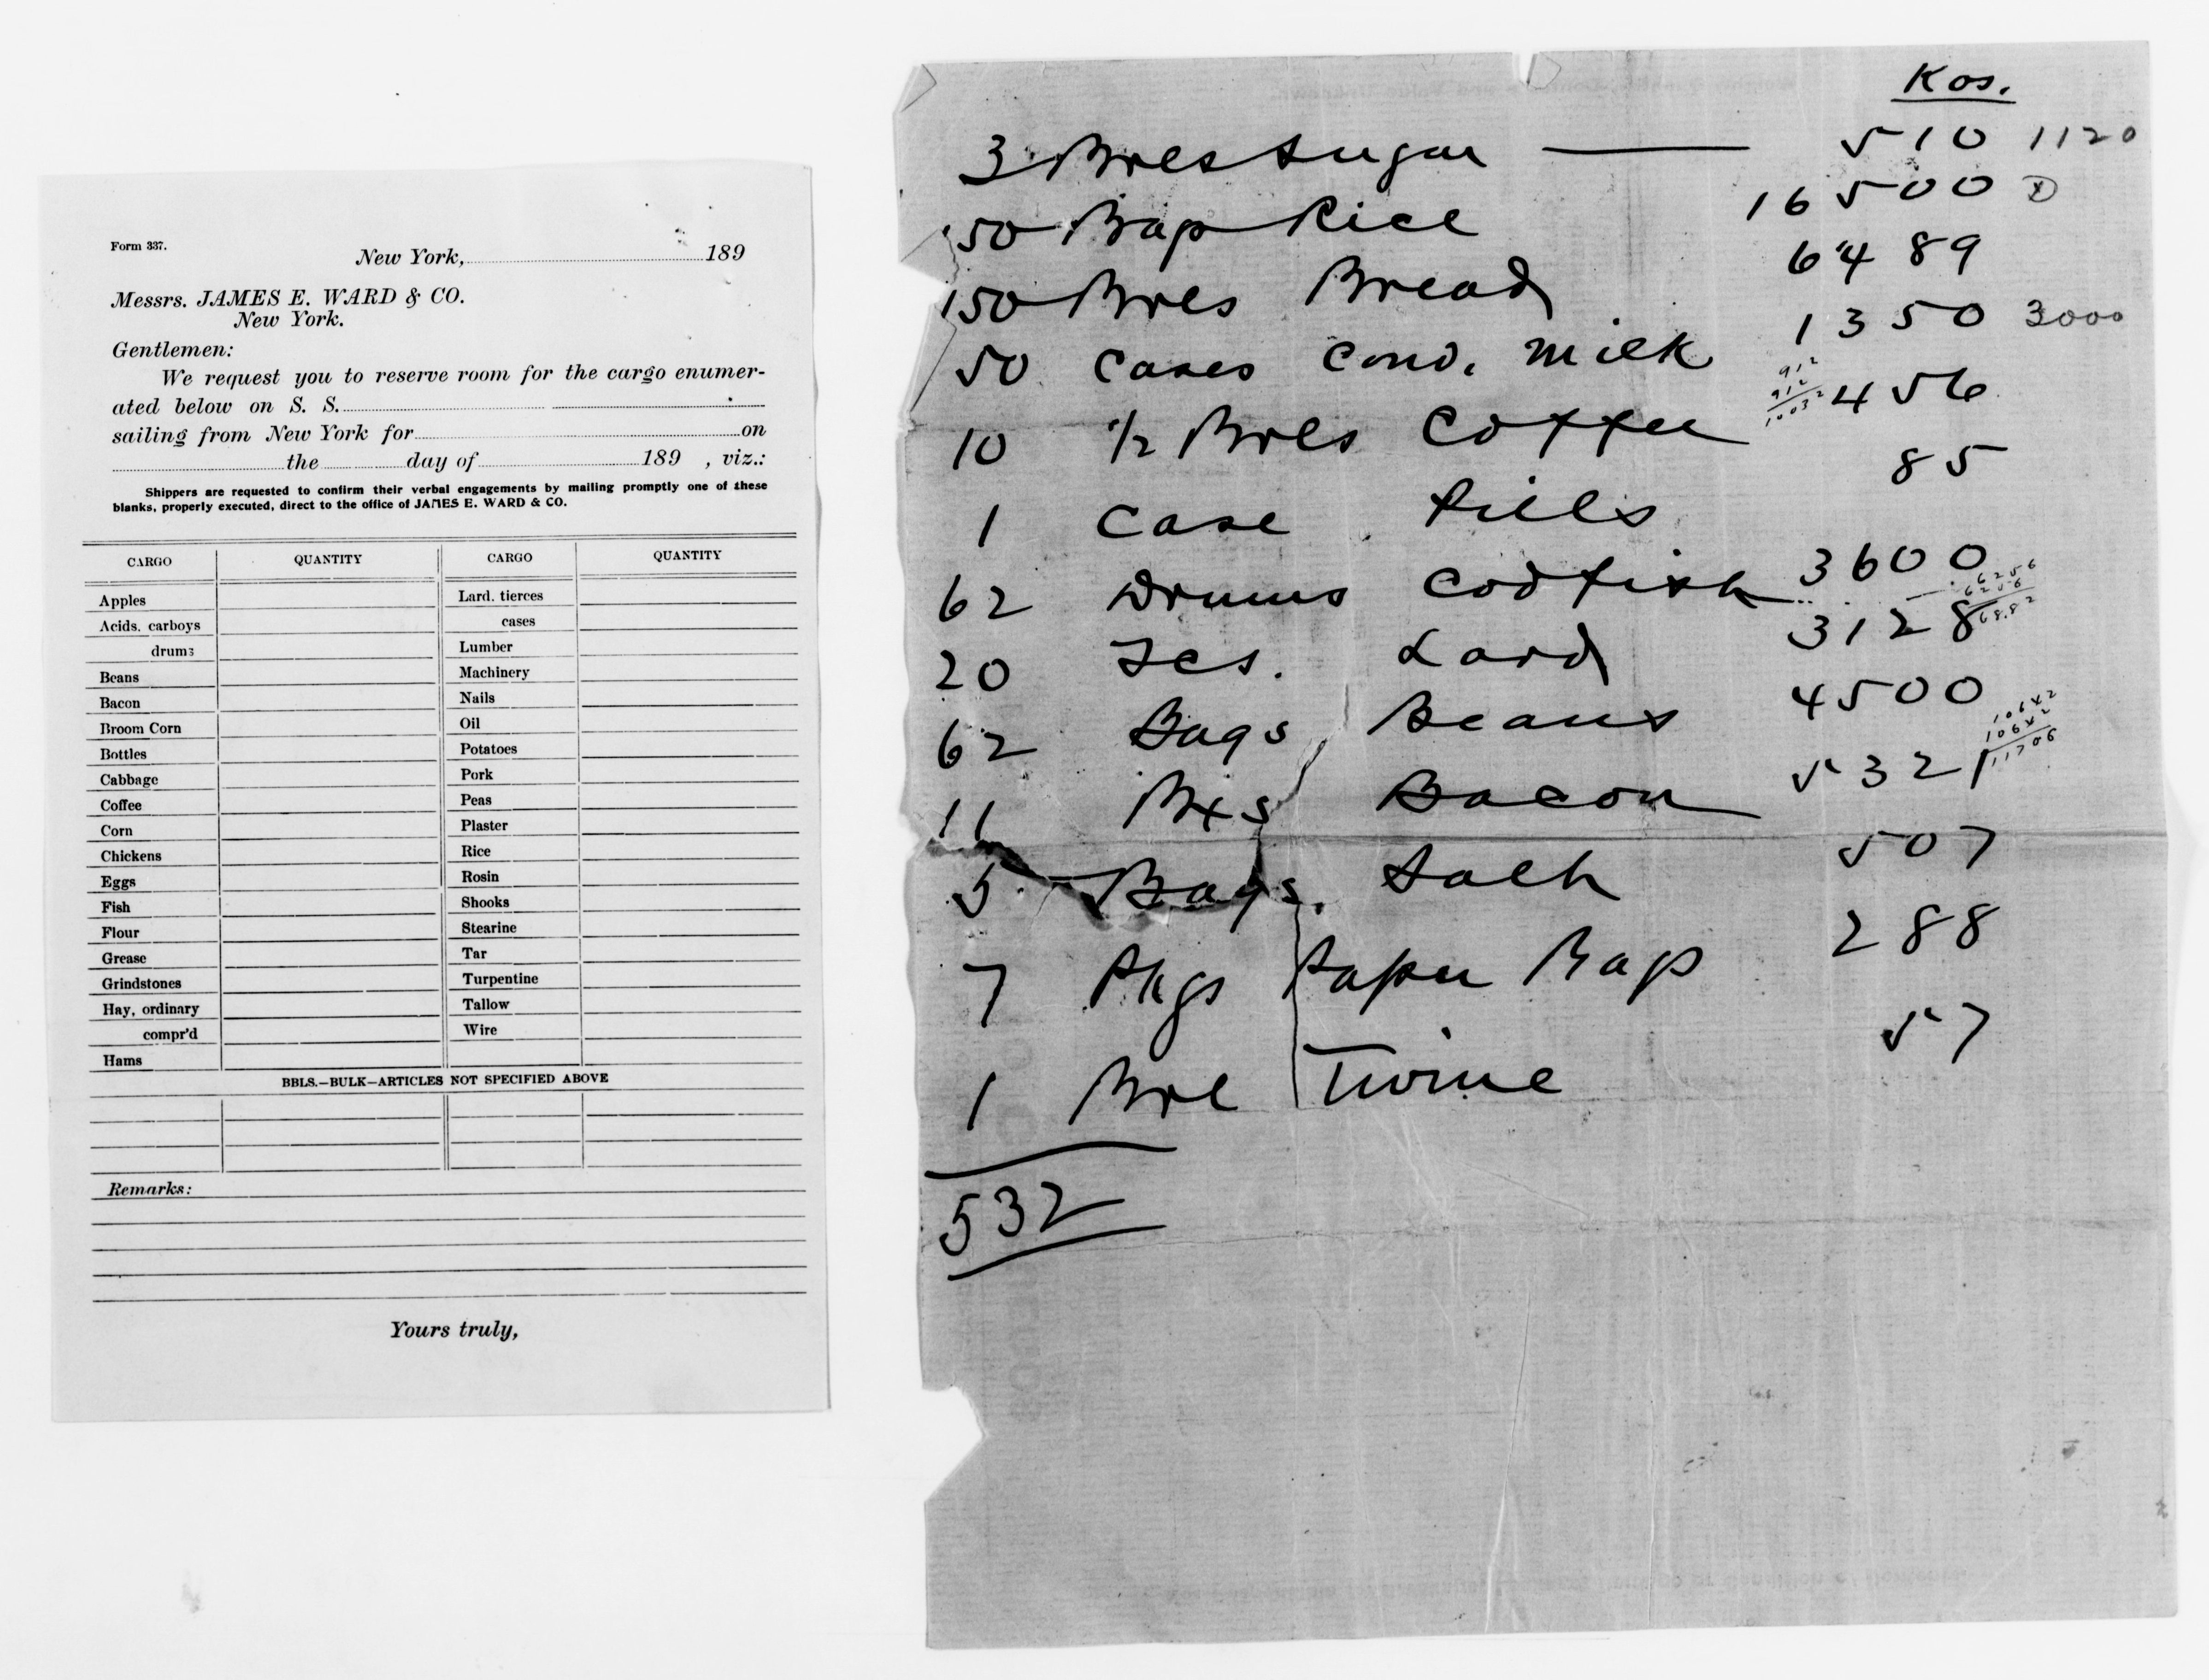 Form 337.
New York, 189
Messrs. JAMES E. WARD & CO.
New York.
Gentlemen:
We request you to reserve room for the cargo enumer-
ated below on S. S.
sailing from New York for on
the day of 189 , viz.:
Shippers are requested to confirm their verbal engagements by mailing promptly one of these
blanks, properly executed, direct to the office of JAMES E. WARD & CO.
CARGO QUANTITY CARGO QUANTITY
Apples Lard, tierces
Acids, carboys cases
drums Lumber
Beans Machinery
Bacon Nails
Broom Corn Oil
Bottles Potatoes
Cabbage Pork
Coffee Peas
Corn Plaster
Chickens Rice
Eggs Rosin
Fish Shooks
Flour Stearine
Grease Tar
Grindstones Turpentine
Hay, ordinary Tallow
compr'd Wire
Hams
BBLS.—BULK—ARTICLES NOT SPECIFIED ABOVE
Remarks:
Yours truly,
Kos.
3 Brls Sugar — 510 1120
150 Bags Rice 16500
150 Brls Bread 6489
50 Cases Cond. Milk 1350 3000
912
912
10032
10 1/2 Brls Coffee 456
1 Case Pills 85
62 Drums Codfish 3600
20 Tcs. Lard 3128
62 Bags Beans 4500
11 Bxs Bacon 5321
5 Bags Salt 507
7 Pkgs Paper Bags 288
1 Brl Twine 57
532